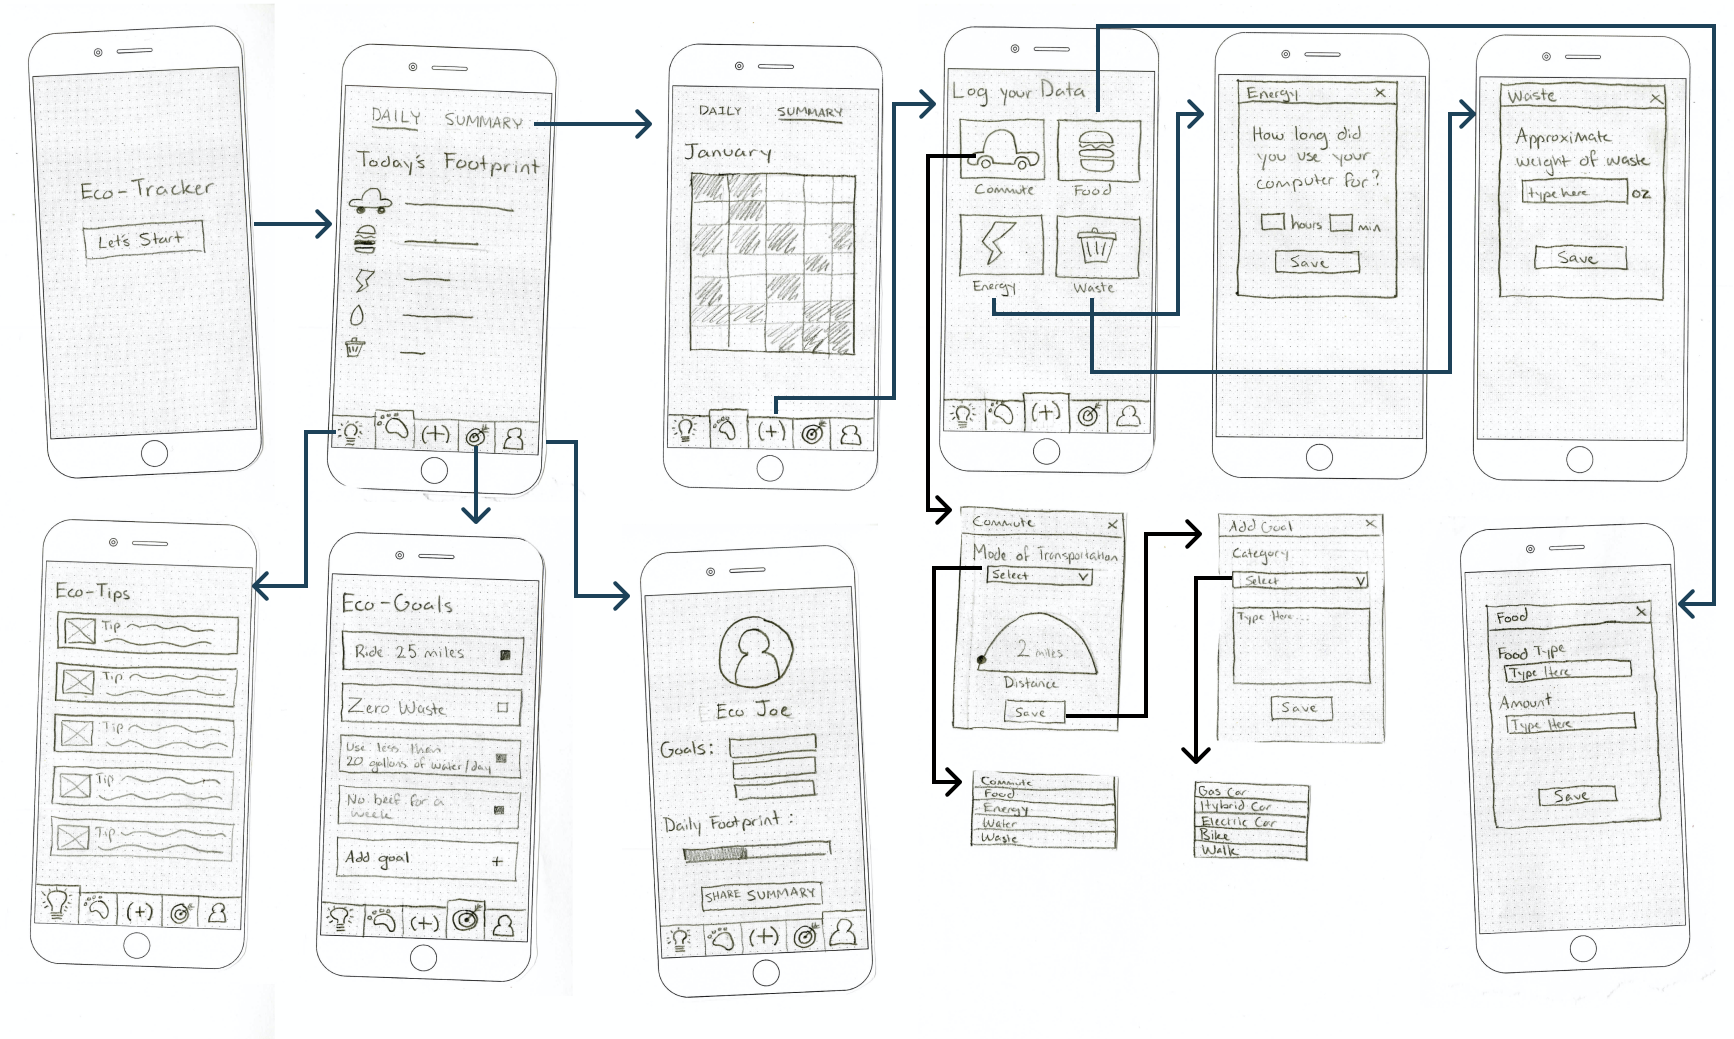 Eco-Tracker
Let's Start
DAILY SUMMARY
Today's Footprint
DAILY SUMMARY
January
Log your Data
Commute Food
Energy Waste
Energy X
How long did
you use your
computer for?
hours min
Save
Waste X
Approximate
weight of waste
type here oz
Save
Eco-Tips
Tip
Tip
Tip
Tip
Tip
Eco-Goals
Ride 25 miles
Zero Waste
Use less than
20 gallons of water/day
No beef for a
week
Add goal +
Eco Joe
Goals:
Daily Footprint:
SHARE SUMMARY
Commute X
Mode of Transportation
Select V
2 miles
Distance
Save
Commute
Food
Energy
Water
Waste
Add Goal X
Category
Select V
Type Here...
Save
Gas Car
Hybrid Car
Electric Car
Bike
Walk
Food X
Food Type
Type Here
Amount
Type Here
Save